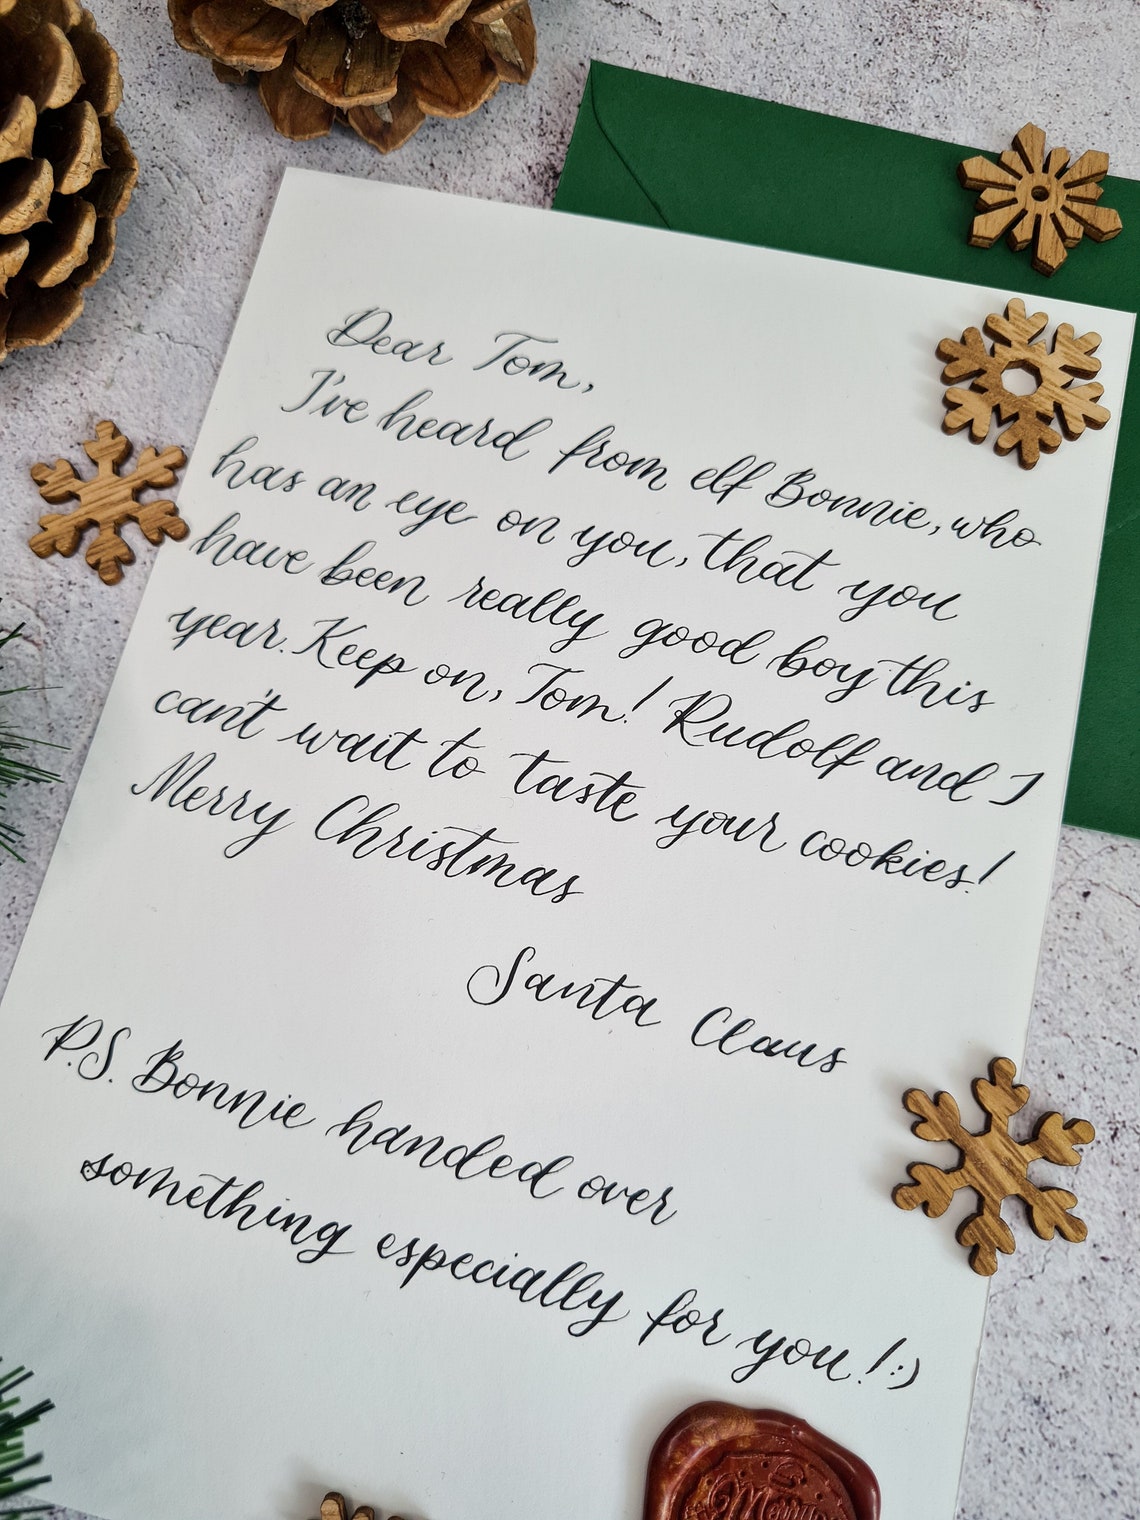 Dear Tom,
I've heard from elf Bonnie, who
has an eye on you, that you
have been really good boy this
year. Keep on, Tom! Rudolf and I
can't wait to taste your cookies!
Merry Christmas
Santa Claus
P.S. Bonnie handed over
something especially for you! :)
Merry